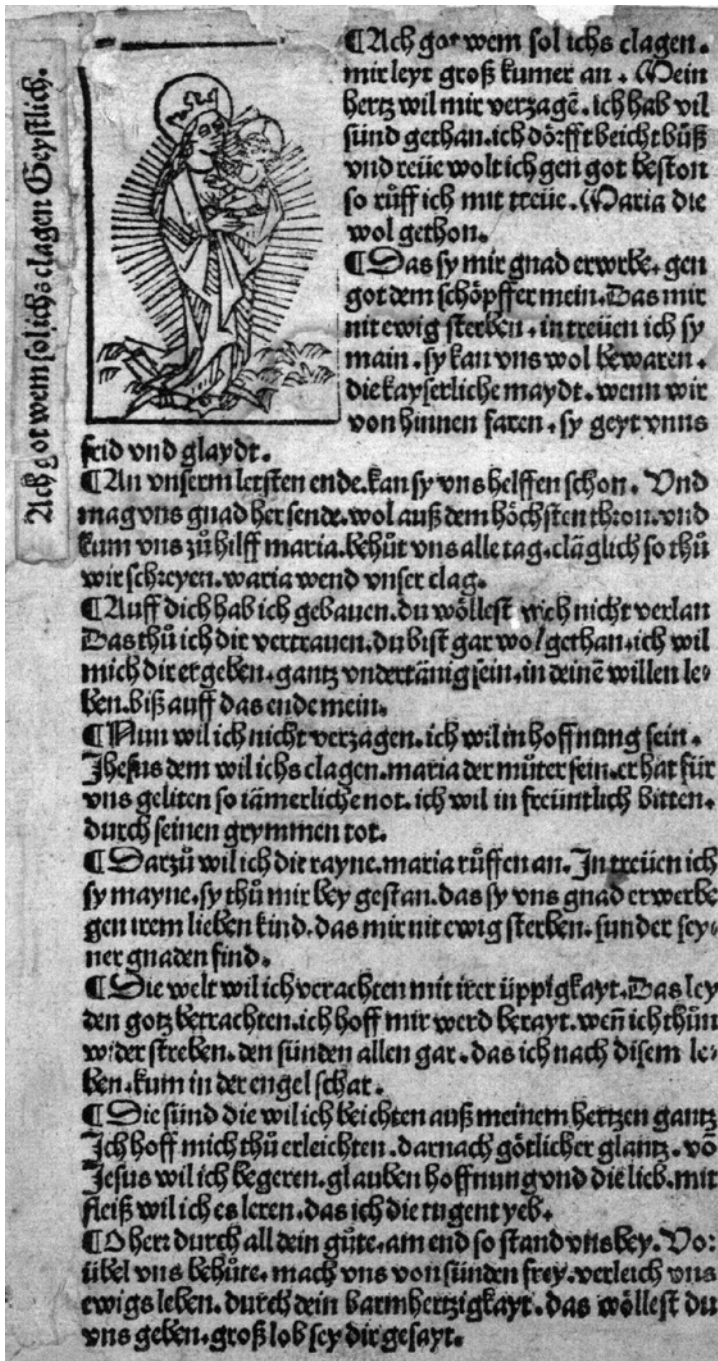 Ach got wem sol ichs clagen Geystlich.
¶Ach got wem sol ichs clagen.
mir leyt groß kumer an. Mein
hertz wil mir verzagē. ich hab vil
sünd gethan. ich dörfft beicht bůß
vnd reüe wolt ich gen got beston
so růff ich mit treüe. Maria die
wol gethon.
¶Das sy mir gnad erwerbe. gen
got dem schöpffer mein. Das mir
nit ewig sterben. in treüen ich sy
main. sy kan vns wol bewaren.
die kayserliche maydt. wenn wir
von hinnen faren. sy geyt vnns
frid vnd glaydt.
¶An vnserm letsten ende. kan sy vns helffen schon. Vnd
mag vns gnad her sende. wol auß dem höchsten thron. vnd
kum vns zů hilff maria. behůt vns alle tag. cläglich so thů
wir schreyen. waria wend vnser clag.
¶Auff dich hab ich gebauen. du wöllest mich nicht verlan
Das thů ich dir vertrauen. du bist gar wol gethan. ich wil
mich dir ergeben. gantz vndertänig sein. in deinē willen le⸗
ben. biß auff das ende mein.
¶Nun wil ich nicht verzagen. ich wil in hoffnung sein.
Jhesus dem wil ichs clagen. maria der můter sein. er hat für
vns geliten so iämerliche not. ich wil in freüntlich bitten.
durch seinen grymmen tot.
¶Darzů wil ich die rayne. maria růffen an. In treüen ich
sy mayne. sy thů mir bey gestan. das sy vns gnad erwerbe
gen irem lieben kind. das mir nit ewig sterben. sunder sey⸗
ner gnaden find.
¶Die welt wil ich verachten mit irer üppigkayt. Das ley
den gotz betrachten. ich hoff mir werd berayt. weñ ich thůn
wider streben. den sünden allen gar. das ich nach disem le⸗
ben. kum in der engel schar.
¶Die sünd die wil ich beichten auß meinem hertzen gantz
Ich hoff mich thů erleichten. darnach götlicher glantz. vō
Jesus wil ich begeren. glauben hoffnung vnd die lieb. mit
fleiß wil ich es leren. das ich die tugent yeb.
¶O herr durch all dein gůte. am end so stand vns bey. Vor
übel vns behůte. mach vns von sünden frey. verleich vns
ewigs leben. durch dein barmhertzigkayt. das wöllest du
vns geben. groß lob sey dir gesayt.